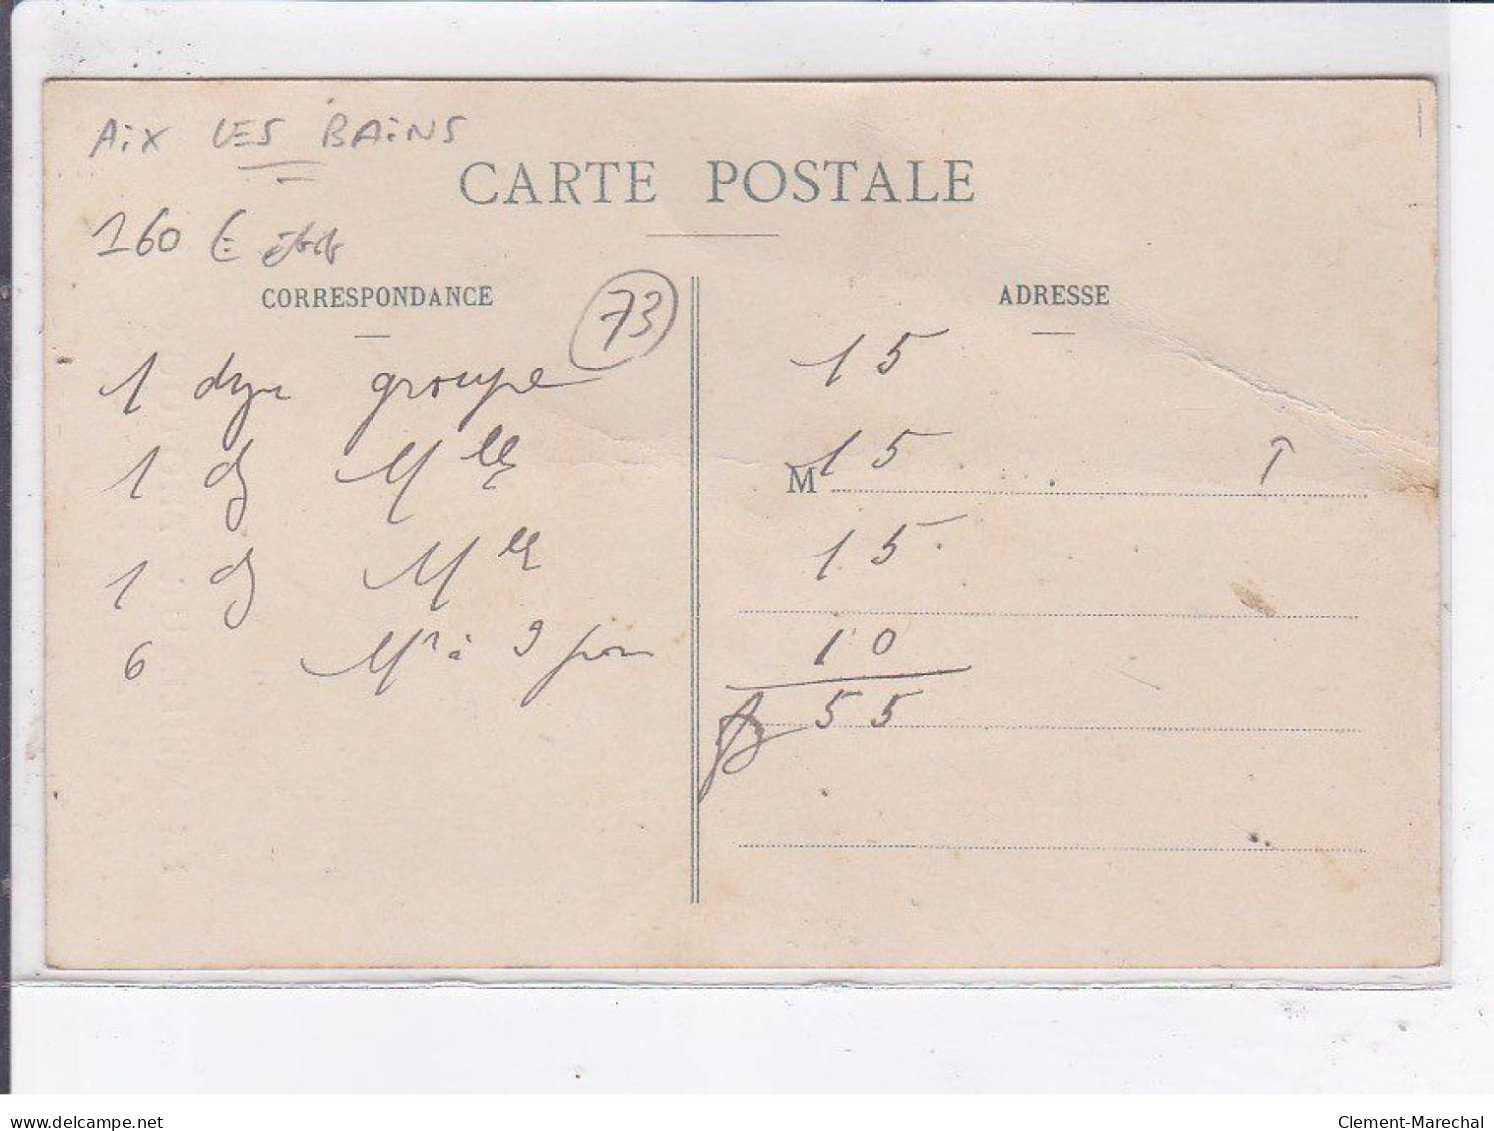 AiX LES BAiNS
CARTE POSTALE
160 €
CORRESPONDANCE
73
1 groupe
1 dz Mlle
1 dz Mlle
6 Mr à 9
ADRESSE
15
M 15
15
10
55
delcampe.net
Clement-Marechal